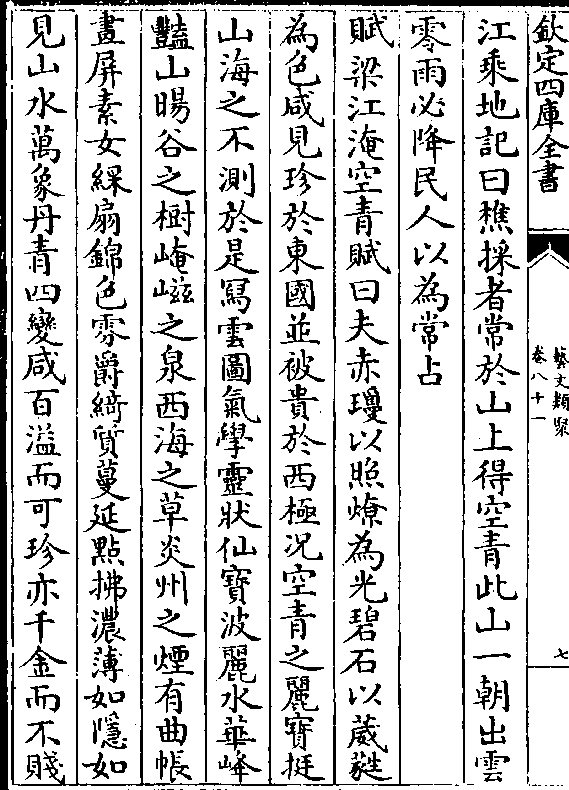 欽定四庫全書
藝文類聚
卷八十一
七
江乘地記曰樵採者常於山上得空青此山一朝出雲
零雨必降民人以為常占
賦梁江淹空青賦曰夫赤瓊以照燎為光碧石以葳蕤
為色咸見珍於東國並被貴於西極况空青之麗寶挺
山海之不測於是冩雲圖氣學靈狀仙寶波麗水華峰
豔山暘谷之樹崦嵫之泉西海之草炎州之煙有曲帳
畫屏素女綵扇錦色雰爵綺質蔓延點拂濃薄如隱如
見山水萬象丹青四變咸百溢而可珍亦千金而不賤